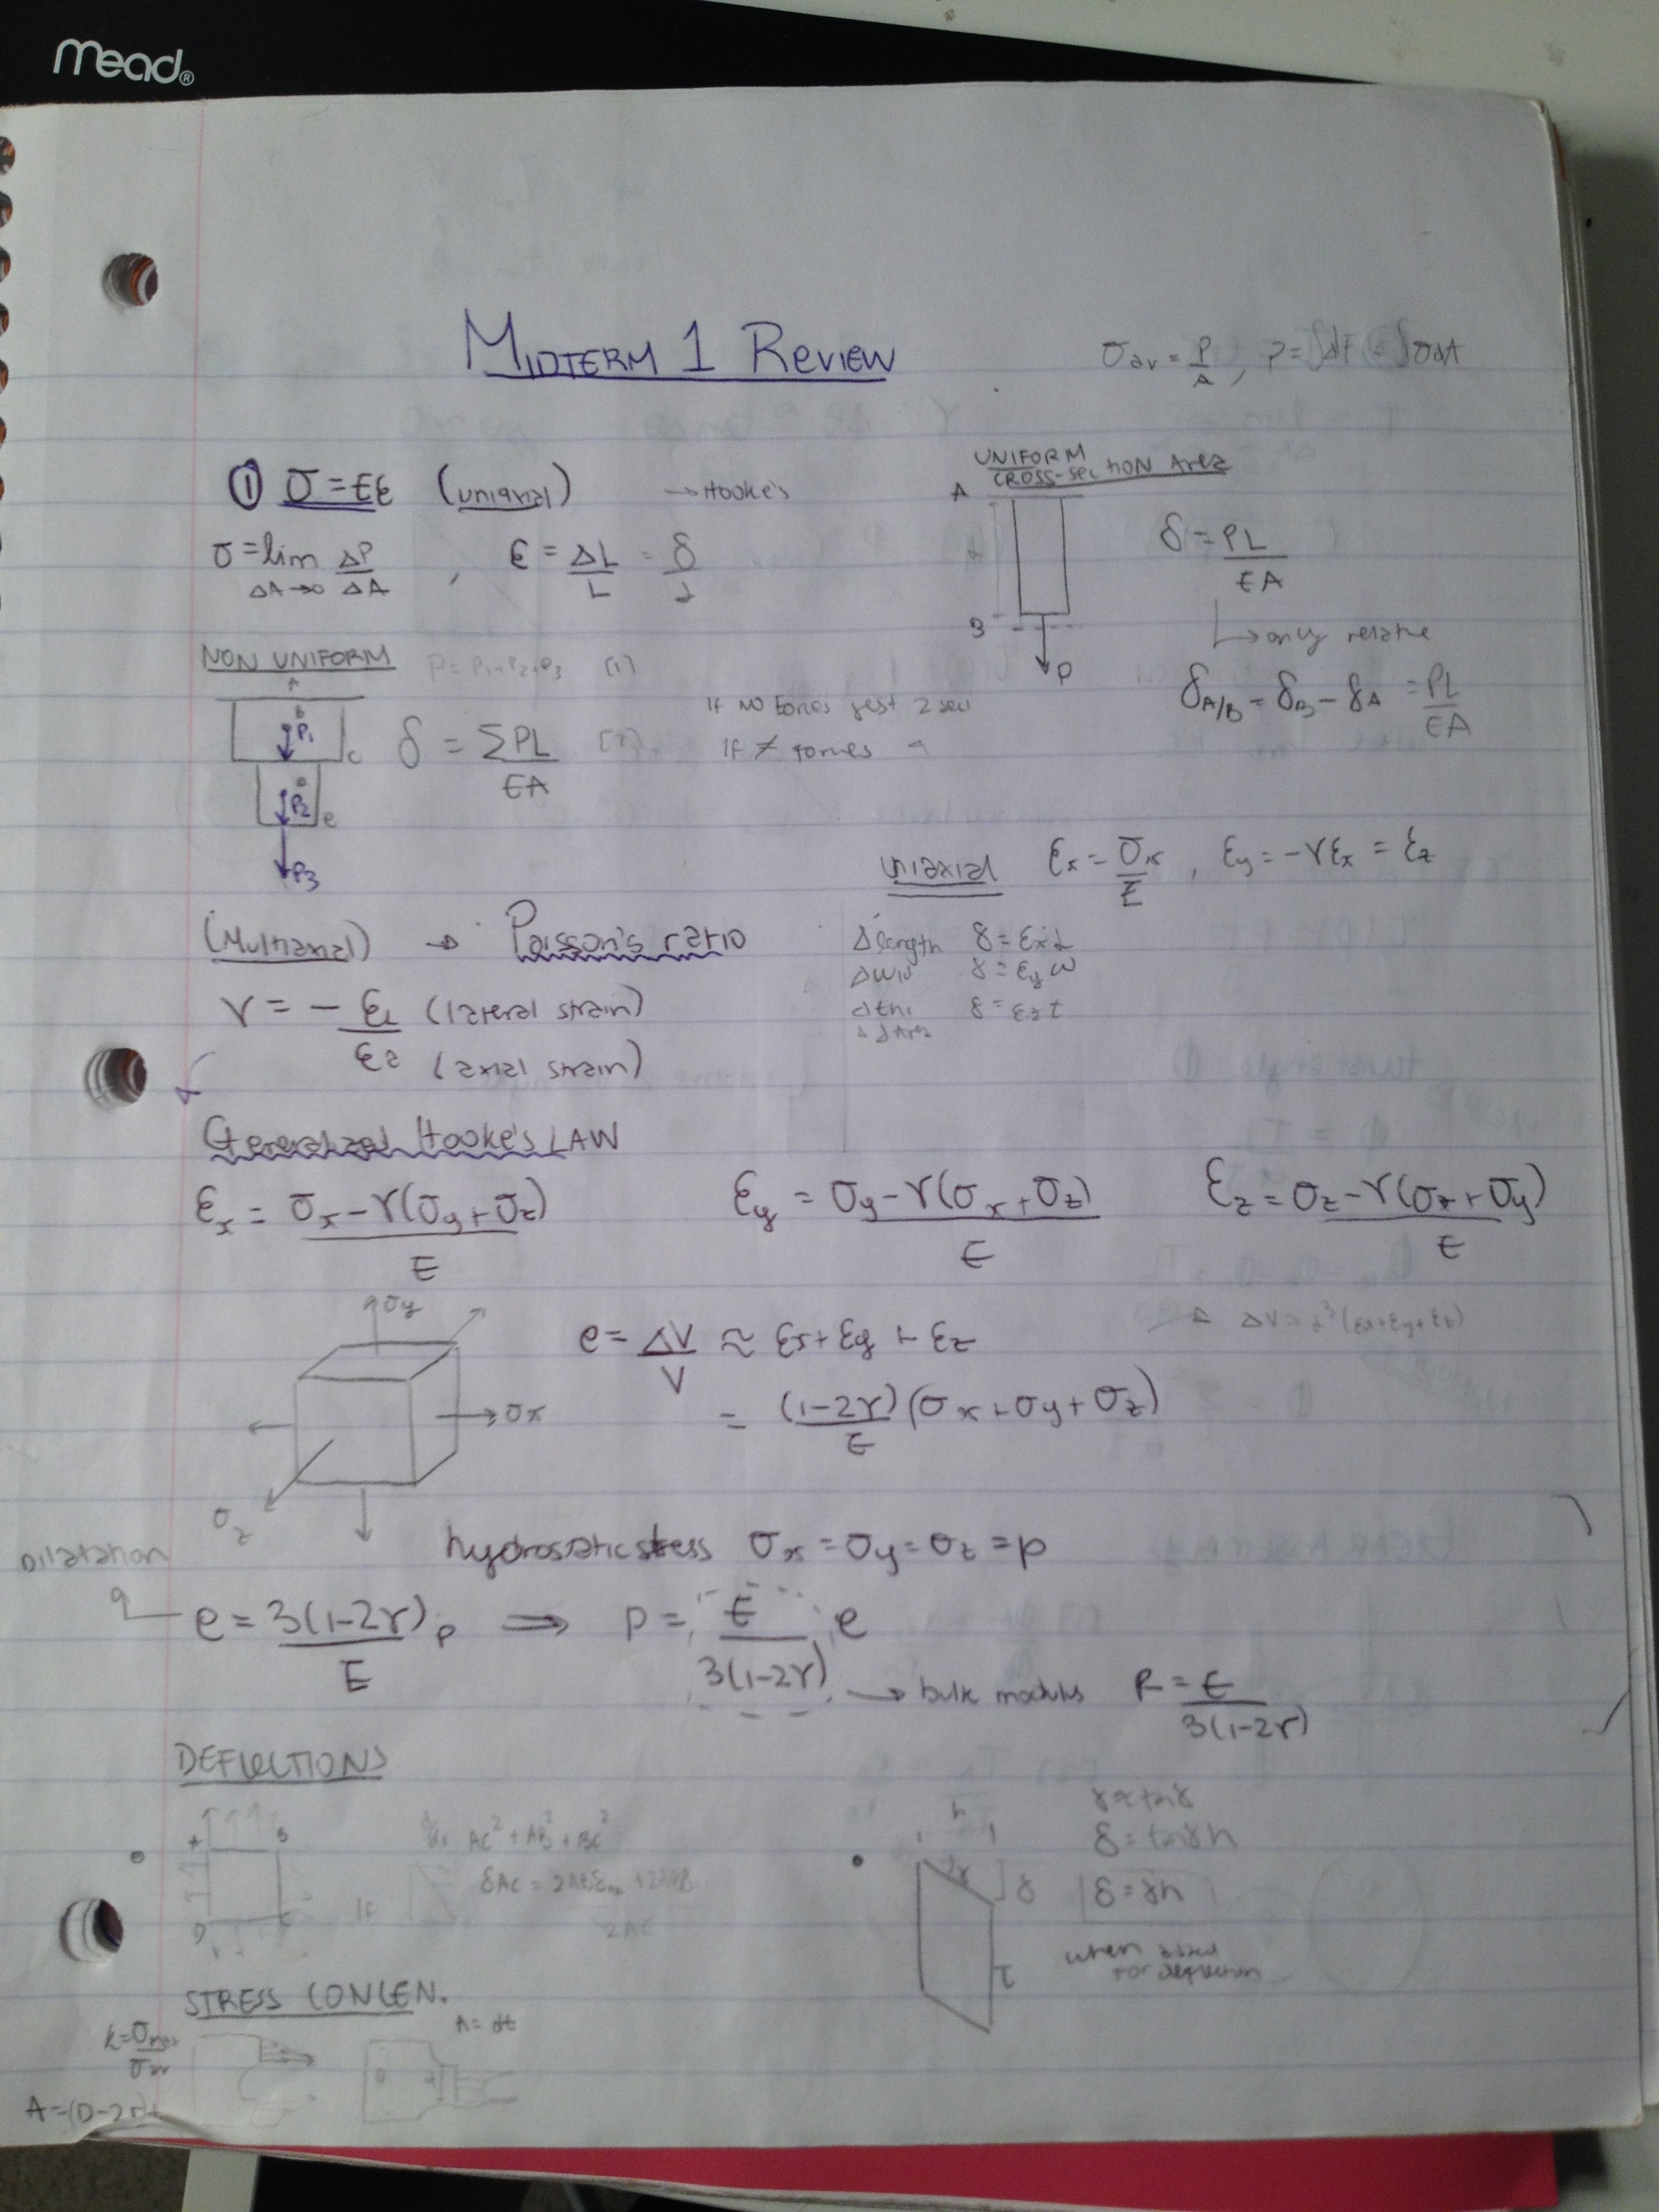 mead®
MIDTERM 1 REVIEW
σav = P/A, P = ∫dF = ∫σdA
① σ = Eε (uniaxial) → Hooke's
σ = lim ΔA→0 ΔP/ΔA , ε = ΔL/L = δ/L
UNIFORM
CROSS-SECTION Area
A
L
B
P
δ = PL/EA
↳ only relative
δA/B = δB - δA = PL/EA
NON UNIFORM P = P1+P2+P3 [1]
A
B
P1
C
P2
e
P3
δ = ΣPL/EA [2]
If NO forces just 2 sec
If ≠ forces
uniaxial εx = σx/E , εy = -γεx = εz
(Multiaxial) → Poisson's ratio
γ = - εL (lateral strain)
εa (axial strain)
Δlength δ = εxL
Δwid δ = εyw
dthi δ = εzt
Generalized Hooke's LAW
εx = σx-γ(σy+σz)/E
εy = σy-γ(σx+σz)/E
εz = σz-γ(σx+σy)/E
σy
σx
σz
e = ΔV/V ≈ εx+εy+εz
= (1-2γ)/E (σx+σy+σz)
ΔV ≈ L³(εx+εy+εz)
hydrostatic stress σx = σy = σz = p
Dilatation
e = 3(1-2γ)/E p ⇒ p = E/3(1-2γ) e
→ bulk modulus k = E/3(1-2γ)
DEFLECTIONS
A
B
D
If
AC² + AB² + BC²
2AC
h
γ
δ
τ
γ ≈ tanγ
δ = tanγh
δ = γh
when asked
for deflection
STRESS CONCEN.
k = σmax/σav
A = dt
A = (D-2r)t